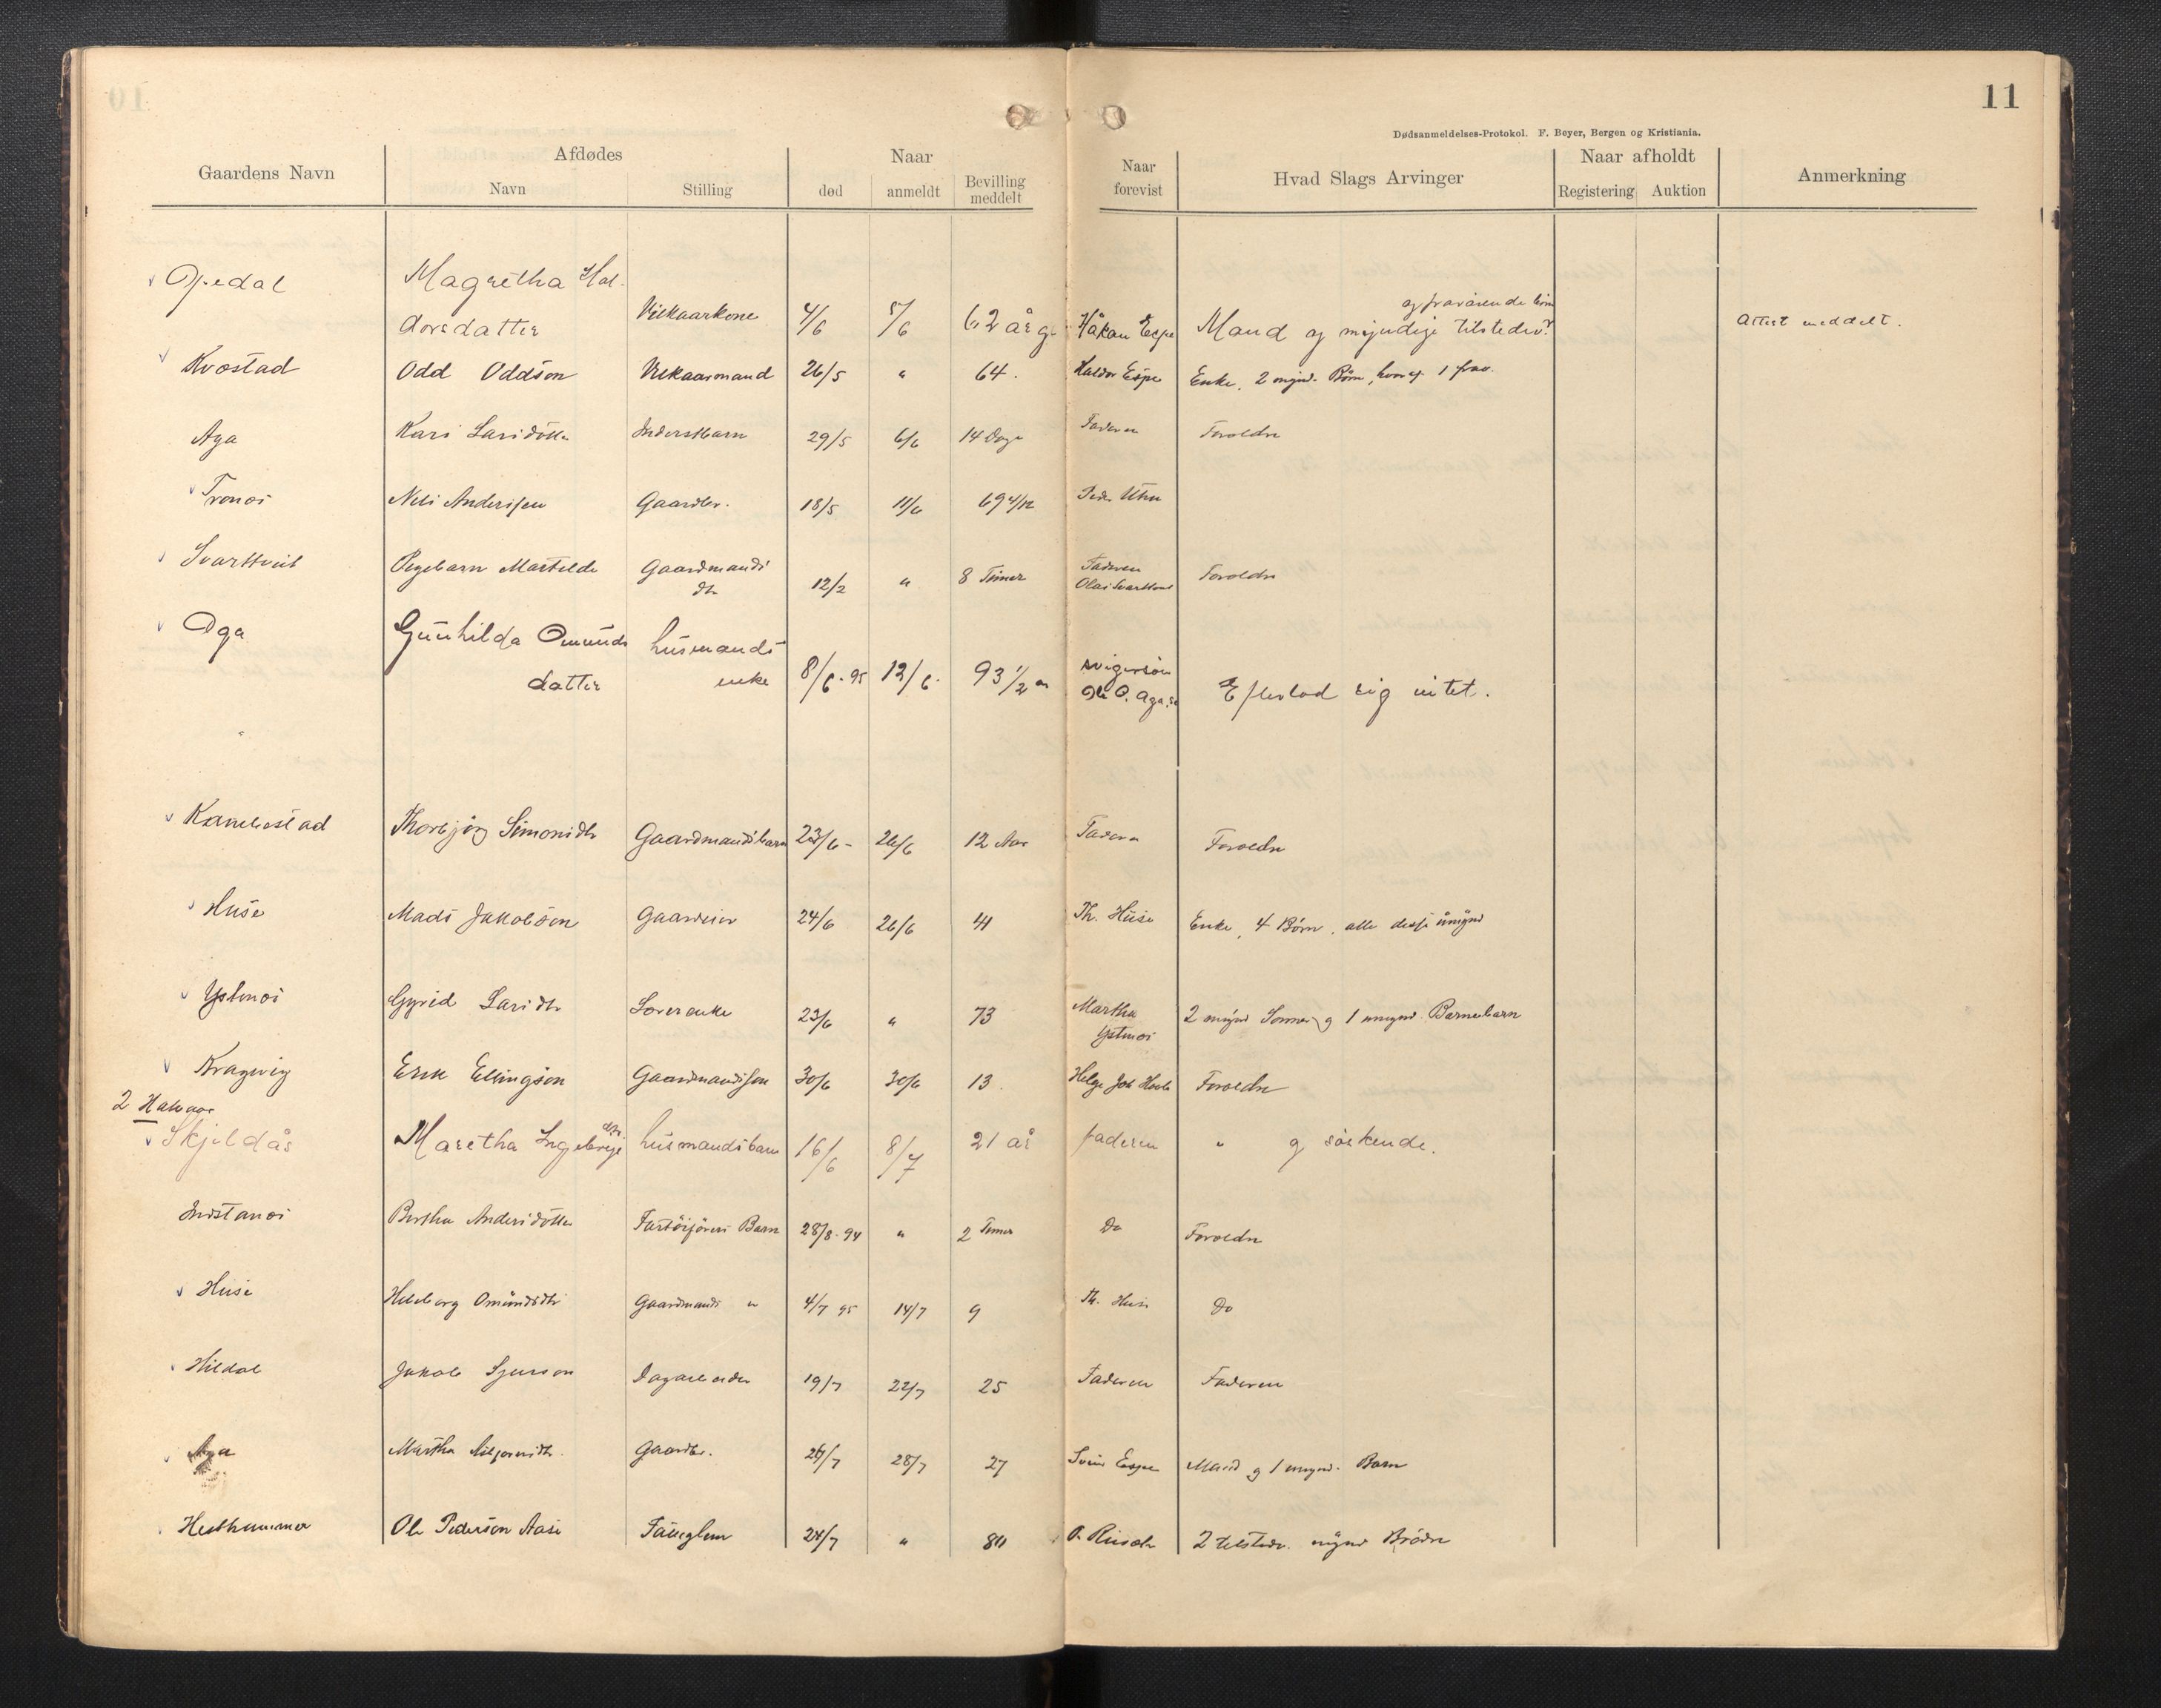 11
Dødsanmeldelses-Protokol. F. Beyer, Bergen og Kristiania.
Gaardens Navn | Afdødes | Naar | Naar forevist | Hvad Slags Arvinger | Naar afholdt | Anmerkning
Navn | Stilling | død | anmeldt | Bevilling meddelt | Registering | Auktion
Opedal | Magretha Hal-
dorsdatter | Vilkaarkone | 4/6 | 5/6 | 62 år g. | Håkan Espe | Mand og myndige tilstedev. og fraværende børn | Attest meddelt.
Kvæstad | Odd Oddsøn | Vilkaarmand | 26/5 | " | 64. | Haldor Espe | Enke, 2 mynd. Børn, hvoraf 1 frav.
Aga | Kari Larsdotter | Inderstbarn | 29/5 | 6/6 | 14 Dage | Faderen | Foreldre
Tronæs | Nils Andersen | Gaardbr. | 18/5 | 11/6 | 69 4/12 | Peder Utne
Svartveit | Pigebarn Martilde | Gaardmands
dtr | 12/2 | " | 8 Timer | Faderen
Olai Svartveit | Foreldre
Aga | Gunhilda Omunds
datter | husmands
enke | 8/6-95 | 12/6. | 93 1/2 | svigersøn
Ole O. Aga | Efterlod sig intet.
Thorbjørg Simonsdtr | Gaardmandsbarn | 23/6- | 26/6 | 12 Aar | Faderen | Foreldre
Huse | Mads Jakobsøn | Gaardeier | 24/6 | 26/6 | 41 | Th. Huse | Enke, 4 Børn, alle disse umynd
Ystenæs | Gyrid Larsdtr | 23/6 | " | 73 | Martha
Ystenæs | 2 mynd Sønner og 1 umynd. Barnebarn
Kragevig | Erik Ellingsøn | Gaardmandssøn | 30/6 | 30/6 | 13. | Helge Joh | Foreldre
2 Halvaar
Skjeldås | Maretha Ingebrigtsdtr | husmandsbarn | 16/6 | 8/7 | 21 år | faderen | " og søskende.
Indstenæs | Bertha Andersdotter | Barn | 28/8-94 | " | 2 Timer | Do | Foreldre
Huse | Helleborg Omundsdtr | Gaardmands " | 4/7 95 | 14/7 | 9 | Th. Huse | Do
Hildal | Jakob Sjurson | Dagarbeider | 19/7 | 22/7 | 25 | Faderen | Faderen
Aga | Martha | Gaardbr. | 26/7 | 28/7 | 27 | Svein Espe | Mand og 1 umynd. Barn
Hesthammer | Ole Pederson Aase | Fattiglem | 24/7 | " | 80 | O. | 2 tilstedv. mynd Brødre